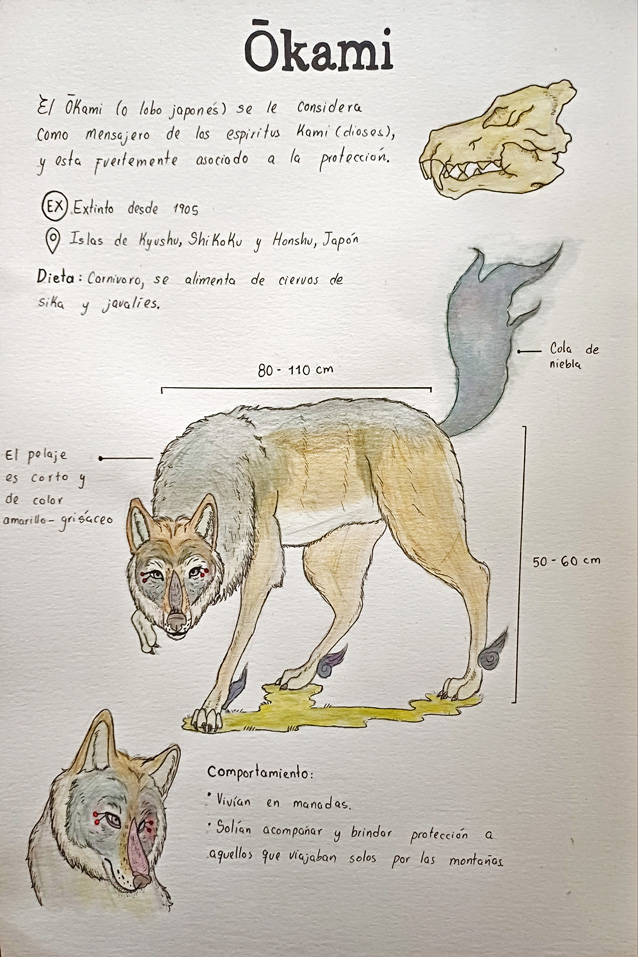 Ōkami
El Ōkami (o lobo japonés) se le considera
como mensajero de los espiritus Kami (dioses),
y esta fuertemente asociado a la protección.
EX Extinto desde 1905
Islas de Kyushu, Shikoku y Honshu, Japón
Dieta: Carnivoro, se alimenta de ciervos de
sika y javalíes.
Cola de
niebla
80 - 110 cm
El pelaje
es corto y
de color
amarillo-grisáceo
50 - 60 cm
Comportamiento:
· Vivían en manadas.
· Solían acompañar y brindar protección a
aquellos que viajaban solos por las montañas